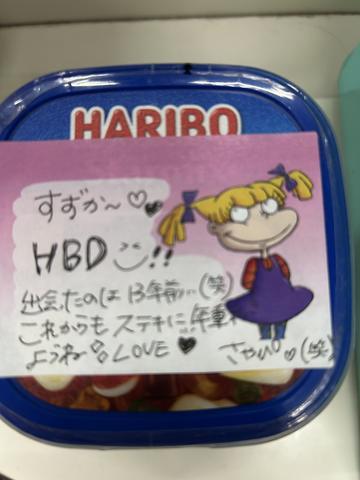 HARIBO
すずか〜♡♥
HBD !!
出会ったのは 13年前…(笑)
これからも ステキに 年重ね
ようね LOVE ♥
さやぴ♡(笑)